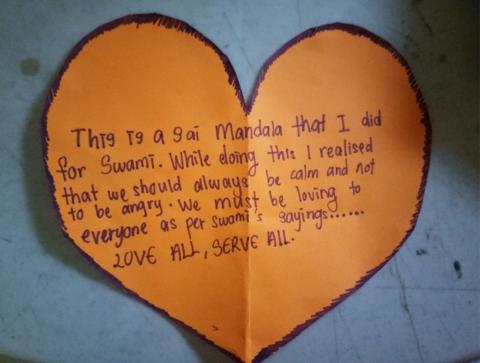 This is a Sai Mandala that I did
for Swami. While doing this I realised
that we should always be calm and not
to be angry. We must be loving to
everyone as per swami's sayings......
LOVE ALL, SERVE ALL.